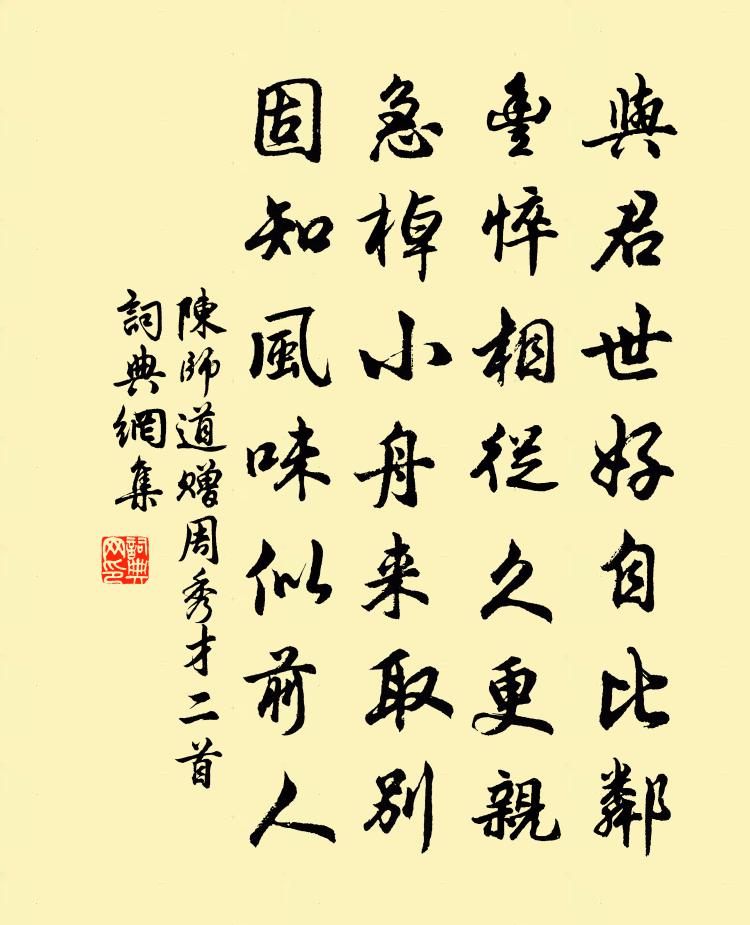 與君世好自比鄰
盡悴相從久更親
急棹小舟来取別
固知風味似前人
陳師道赠周秀才二首
詞典網集
詞典
网印